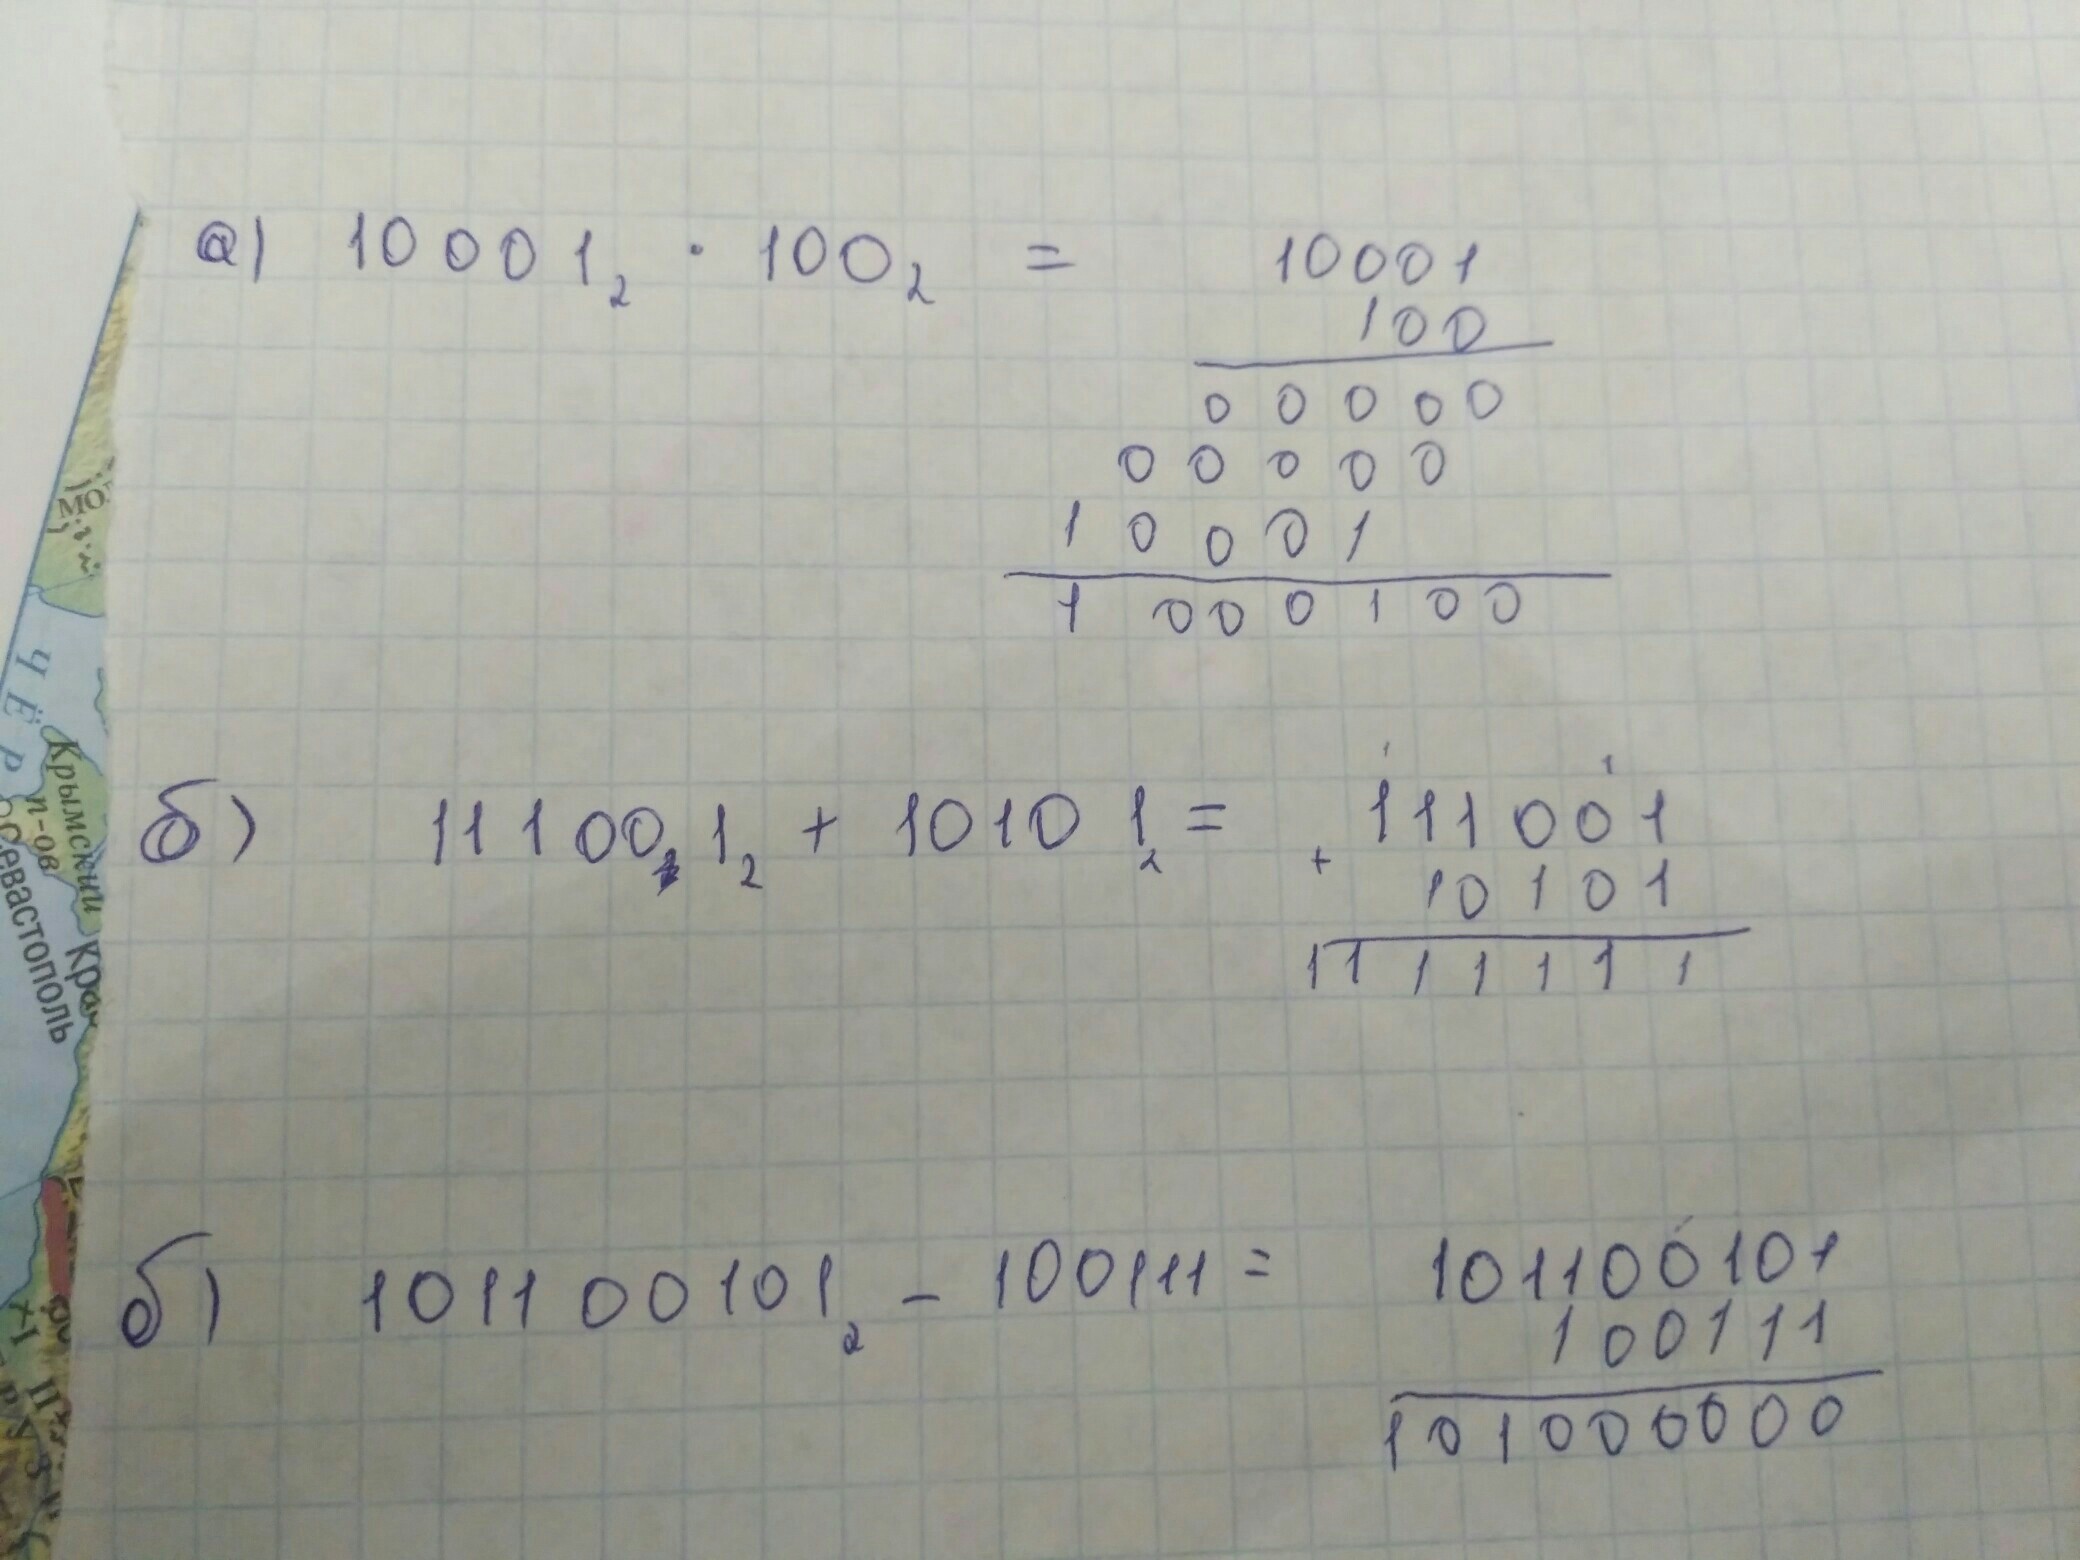 а) 10001₂ · 100₂ = 10001
100
00000
00000
10001
1000100
б) 111001₂ + 10101₂ = 111001
+ 10101
1111111
б) 101100101₂ - 100111 = 101100101
100111
101000000
МО
ЧЁР
Крымский
п-ов
Севастополь
Кра